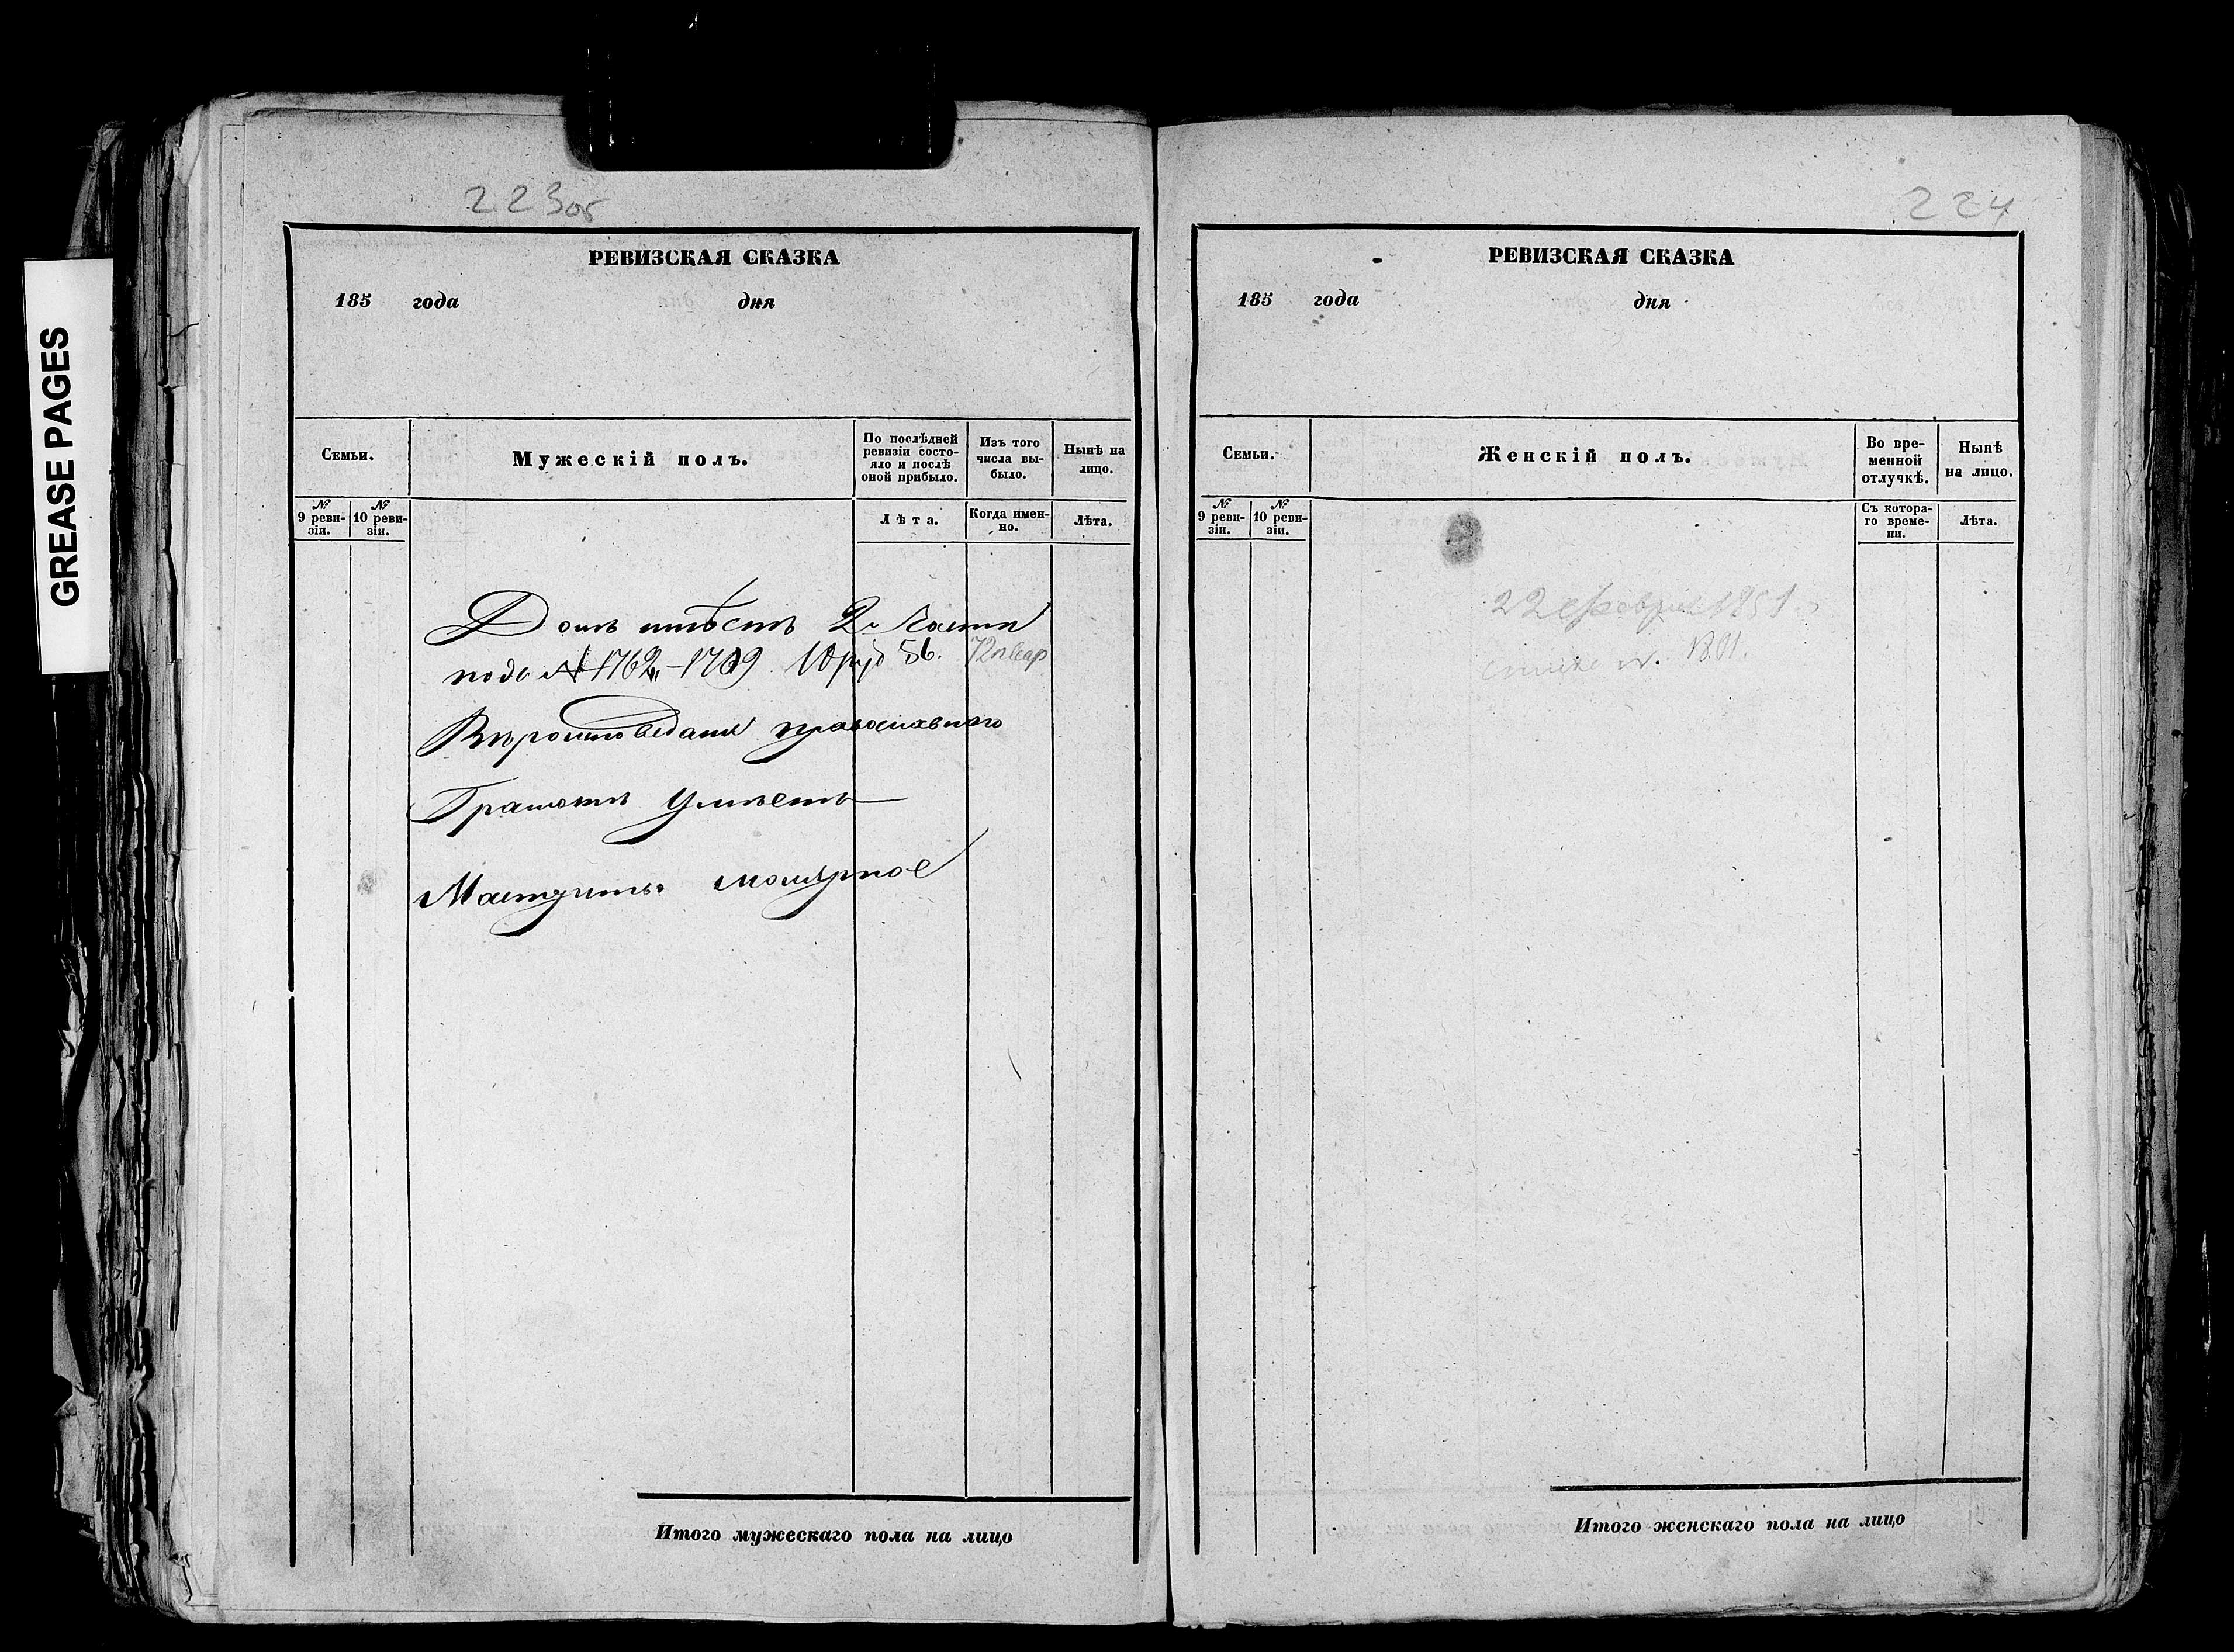 GREASE PAGES
223об
РЕВИЗСКАЯ СКАЗКА
185 года дня
Семьи.
Мужескій полъ.
По послѣдней ревизіи состо-
яло и послѣ
оной прибыло.
Изъ того
числа вы-
было.
Нынѣ на
лицо.
№ 9 реви-
зіи.
№ 10 реви-
зіи.
Лѣта.
Когда имен-
но.
Лѣта.
Домъ имѣетъ 2й Части
подъ № 1762 - 1709 10 руб 56.
Вѣроисповеданія православнаго
Грамотѣ Умѣетъ
Мастерить малярное
Итого мужескаго пола на лицо
224
РЕВИЗСКАЯ СКАЗКА
185 года дня
Семьи.
Женскій полъ.
Во вре-
менной
отлучкѣ.
Нынѣ
на лицо.
№ 9 реви-
зіи.
№ 10 реви-
зіи.
Съ котора-
го време-
ни.
Лѣта.
22 февраля 1851.
Итого женскаго пола на лицо